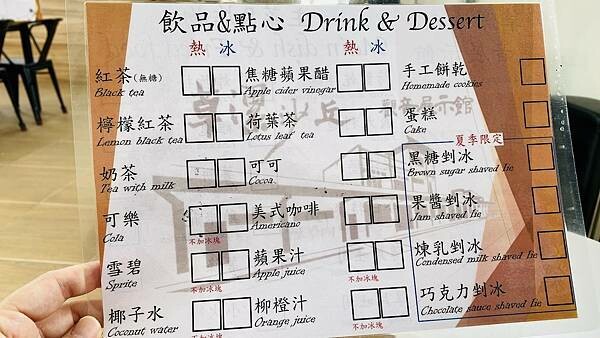 飲品&點心 Drink & Dessert
熱 冰 熱 冰
紅茶(無糖)
Black tea
焦糖蘋果醋
Apple cider vinegar
手工餅乾
Homemade cookies
檸檬紅茶
Lemon black tea
荷葉茶
Lotus leaf tea
蛋糕
Cake
夏季限定
奶茶
Tea with milk
可可
Cocoa
黑糖剉冰
Brown sugar shaved Iie
可樂
Cola
不加冰塊
美式咖啡
Americano
果醬剉冰
Jam shaved Iie
雪碧
Sprite
不加冰塊
蘋果汁
Apple juice
不加冰塊
煉乳剉冰
Condensed milk shaved Iie
椰子水
Coconut water
不加冰塊
柳橙汁
Orange juice
不加冰塊
巧克力剉冰
Chocolate sauce shaved Iie